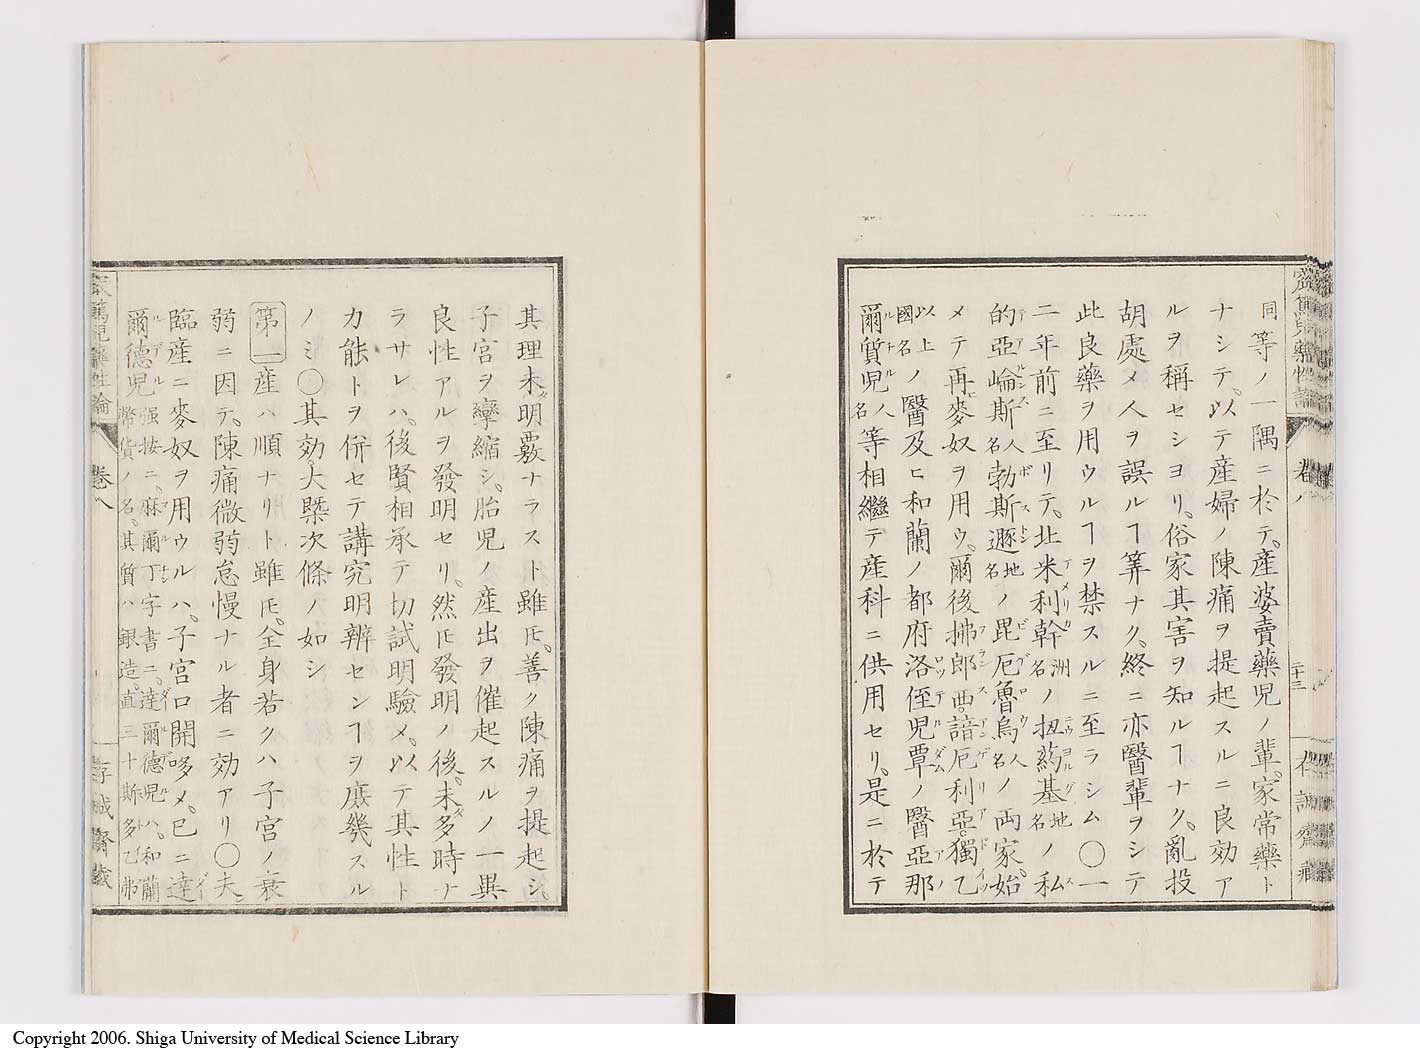 同等ノ一隅ニ於テ、産婆賣藥児ノ輩、家常藥ト
ナシテ、以テ産婦ノ陳痛ヲ提起スルニ良効ア
ルヲ稱セシヨリ、俗家其害ヲ知ルヿナク、亂投
胡處メ人ヲ誤ルヿ筭ナク、終ニ亦醫輩ヲシテ
此良藥ヲ用ウルヿヲ禁スルニ至ラシム〇一
二年前ニ至リテ、北米利幹洲名ノ扭葯基地名ノ私
的亞崘斯人名勃斯遯地名ノ毘厄魯烏人名ノ両家、始
メテ再麥奴ヲ用ウ、爾後拂郎西、諳厄利亞、獨乙
以上國名ノ醫及ヒ和蘭ノ都府洛侄児覃ノ醫亞那
爾質児人名等相繼テ産科ニ供用セリ、是ニ於テ
卷八
二十三
其理未タ明覈ナラスト雖𪜈、善ク陳痛ヲ提起シ、
子宮ヲ攣縮シ、胎児ノ産出ヲ催起スルノ一異
良性アルヲ發明セリ、然𪜈發明ノ後、未タ多時ナ
ラサレハ、後賢相承テ切試明驗メ、以テ其性ト
力能トヲ併セテ講究明辨センヿヲ庶幾スル
ノミ〇其効、大槩次條ノ如シ
第一産ハ順ナリト雖𪜈、全身若クハ子宮ノ衰
弱ニ因テ、陳痛微弱怠慢ナル者ニ効アリ〇夫
臨産ニ麥奴ヲ用ウルハ、子宮口開哆メ、已ニ達
爾德児强按ニ、麻爾丁字書ニ、達爾德児ハ、和蘭幣貨ノ名、其質ハ銀造、直三十斯多乙弗
卷八
Copyright 2006. Shiga University of Medical Science Library